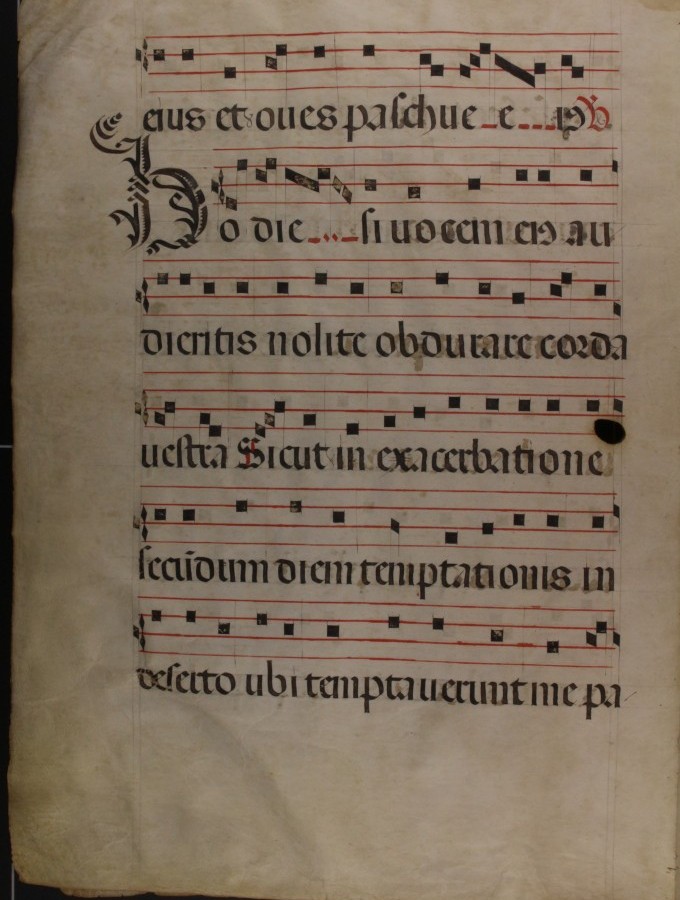 eius et oues paschue e i9 V
Hodie si uocem ei9 au
dieritis nolite obdurare corda
uestra Sicut in exacerbatione
secūdum diem temptationis in
deserto ubi temptauerunt me pa